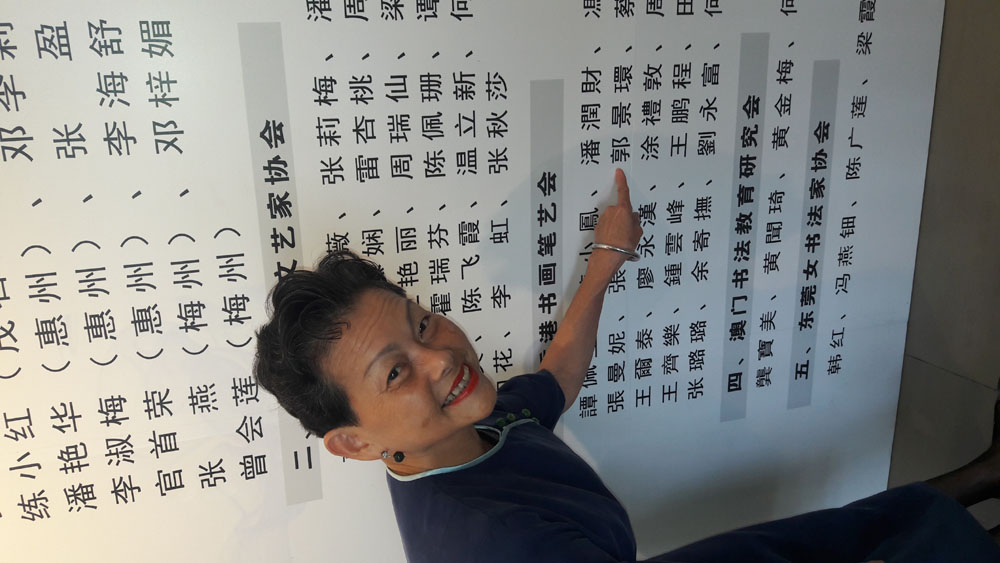 练小红（茂名）
潘艳华（惠州）、邓李莉
李淑梅（惠州）、张 盈
官首荣（惠州）、李海舒
张 燕（梅州）、邓梓媚
曾会莲（梅州）
二、文艺家协会
薇、张莉梅、潘
娴、雷杏桃、周
艳丽、周瑞仙、梁
霍瑞芬、陈佩珊、谭
陈飞霞、温立新、何
花、李 虹、张秋莎
港书画笔艺会
譚佩 小鳳、潘潤財、馮
張曼妮、張 郭景環、蔡
王爾泰、廖永漢、涂禮敦、周
王齊樂、鍾雲峰、王鹏程、田
张璐璐、余寄撫、劉永富、何
四、澳门书法教育研究会
龔寶美、黄聞琦、黄金梅、何
五、东莞女书法家协会
韩红、冯燕钿、陈广莲、梁霞